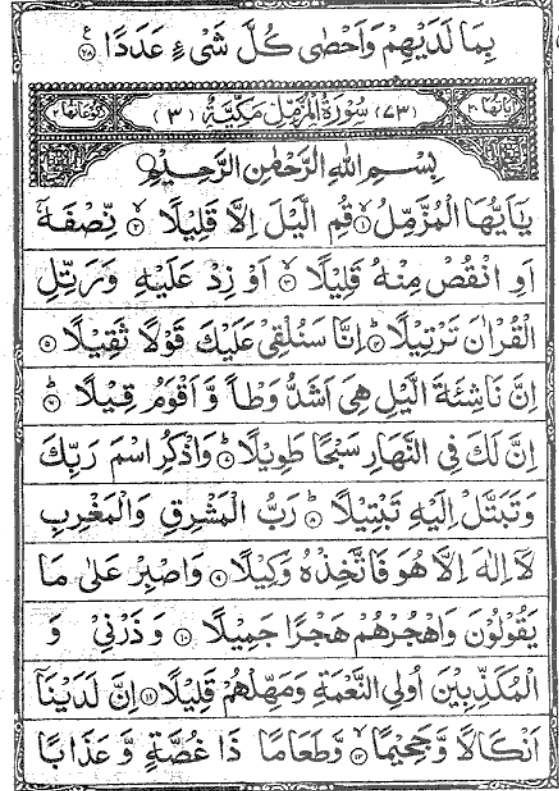 بِمَا لَدَيْهِمْ وَاَحْصٰى كُلَّ شَىْءٍ عَدَدًا ۝۲۸ ع
اٰيَاتُهَا ۲۰ (۷۳) سُوْرَةُ الْمُزَّمِّلِ مَكِّيَّةٌ (۳) رُكُوْعَاتُهَا ۲
بِسْمِ اللهِ الرَّحْمٰنِ الرَّحِيْمِ
يٰۤاَيُّهَا الْمُزَّمِّلُ ۝۱ۙ قُمِ الَّيْلَ اِلَّا قَلِيْلًا ۝۲ۙ نِّصْفَهٗۤ
اَوِ انْقُصْ مِنْهُ قَلِيْلًا ۝۳ۙ اَوْ زِدْ عَلَيْهِ وَرَتِّلِ
الْقُرْاٰنَ تَرْتِيْلًا ۝۴ؕ اِنَّا سَنُلْقِىْ عَلَيْكَ قَوْلًا ثَقِيْلًا ۝۵
اِنَّ نَاشِئَةَ الَّيْلِ هِىَ اَشَدُّ وَطْاً وَّ اَقْوَمُ قِيْلًا ۝۶ؕ
اِنَّ لَكَ فِى النَّهَارِ سَبْحًا طَوِيْلًا ۝۷ؕ وَاذْكُرِ اسْمَ رَبِّكَ
وَتَبَتَّلْ اِلَيْهِ تَبْتِيْلًا ۝۸ؕ رَبُّ الْمَشْرِقِ وَالْمَغْرِبِ
لَاۤ اِلٰهَ اِلَّا هُوَ فَاتَّخِذْهُ وَكِيْلًا ۝۹ وَاصْبِرْ عَلٰى مَا
يَقُوْلُوْنَ وَاهْجُرْهُمْ هَجْرًا جَمِيْلًا ۝۱۰ وَ ذَرْنِىْ وَ
الْمُكَذِّبِيْنَ اُولِى النَّعْمَةِ وَمَهِّلْهُمْ قَلِيْلًا ۝۱۱ اِنَّ لَدَيْنَاۤ
اَنْكَالًا وَّ جَحِيْمًا ۝۱۲ۙ وَّطَعَامًا ذَا غُصَّةٍ وَّ عَذَابًا